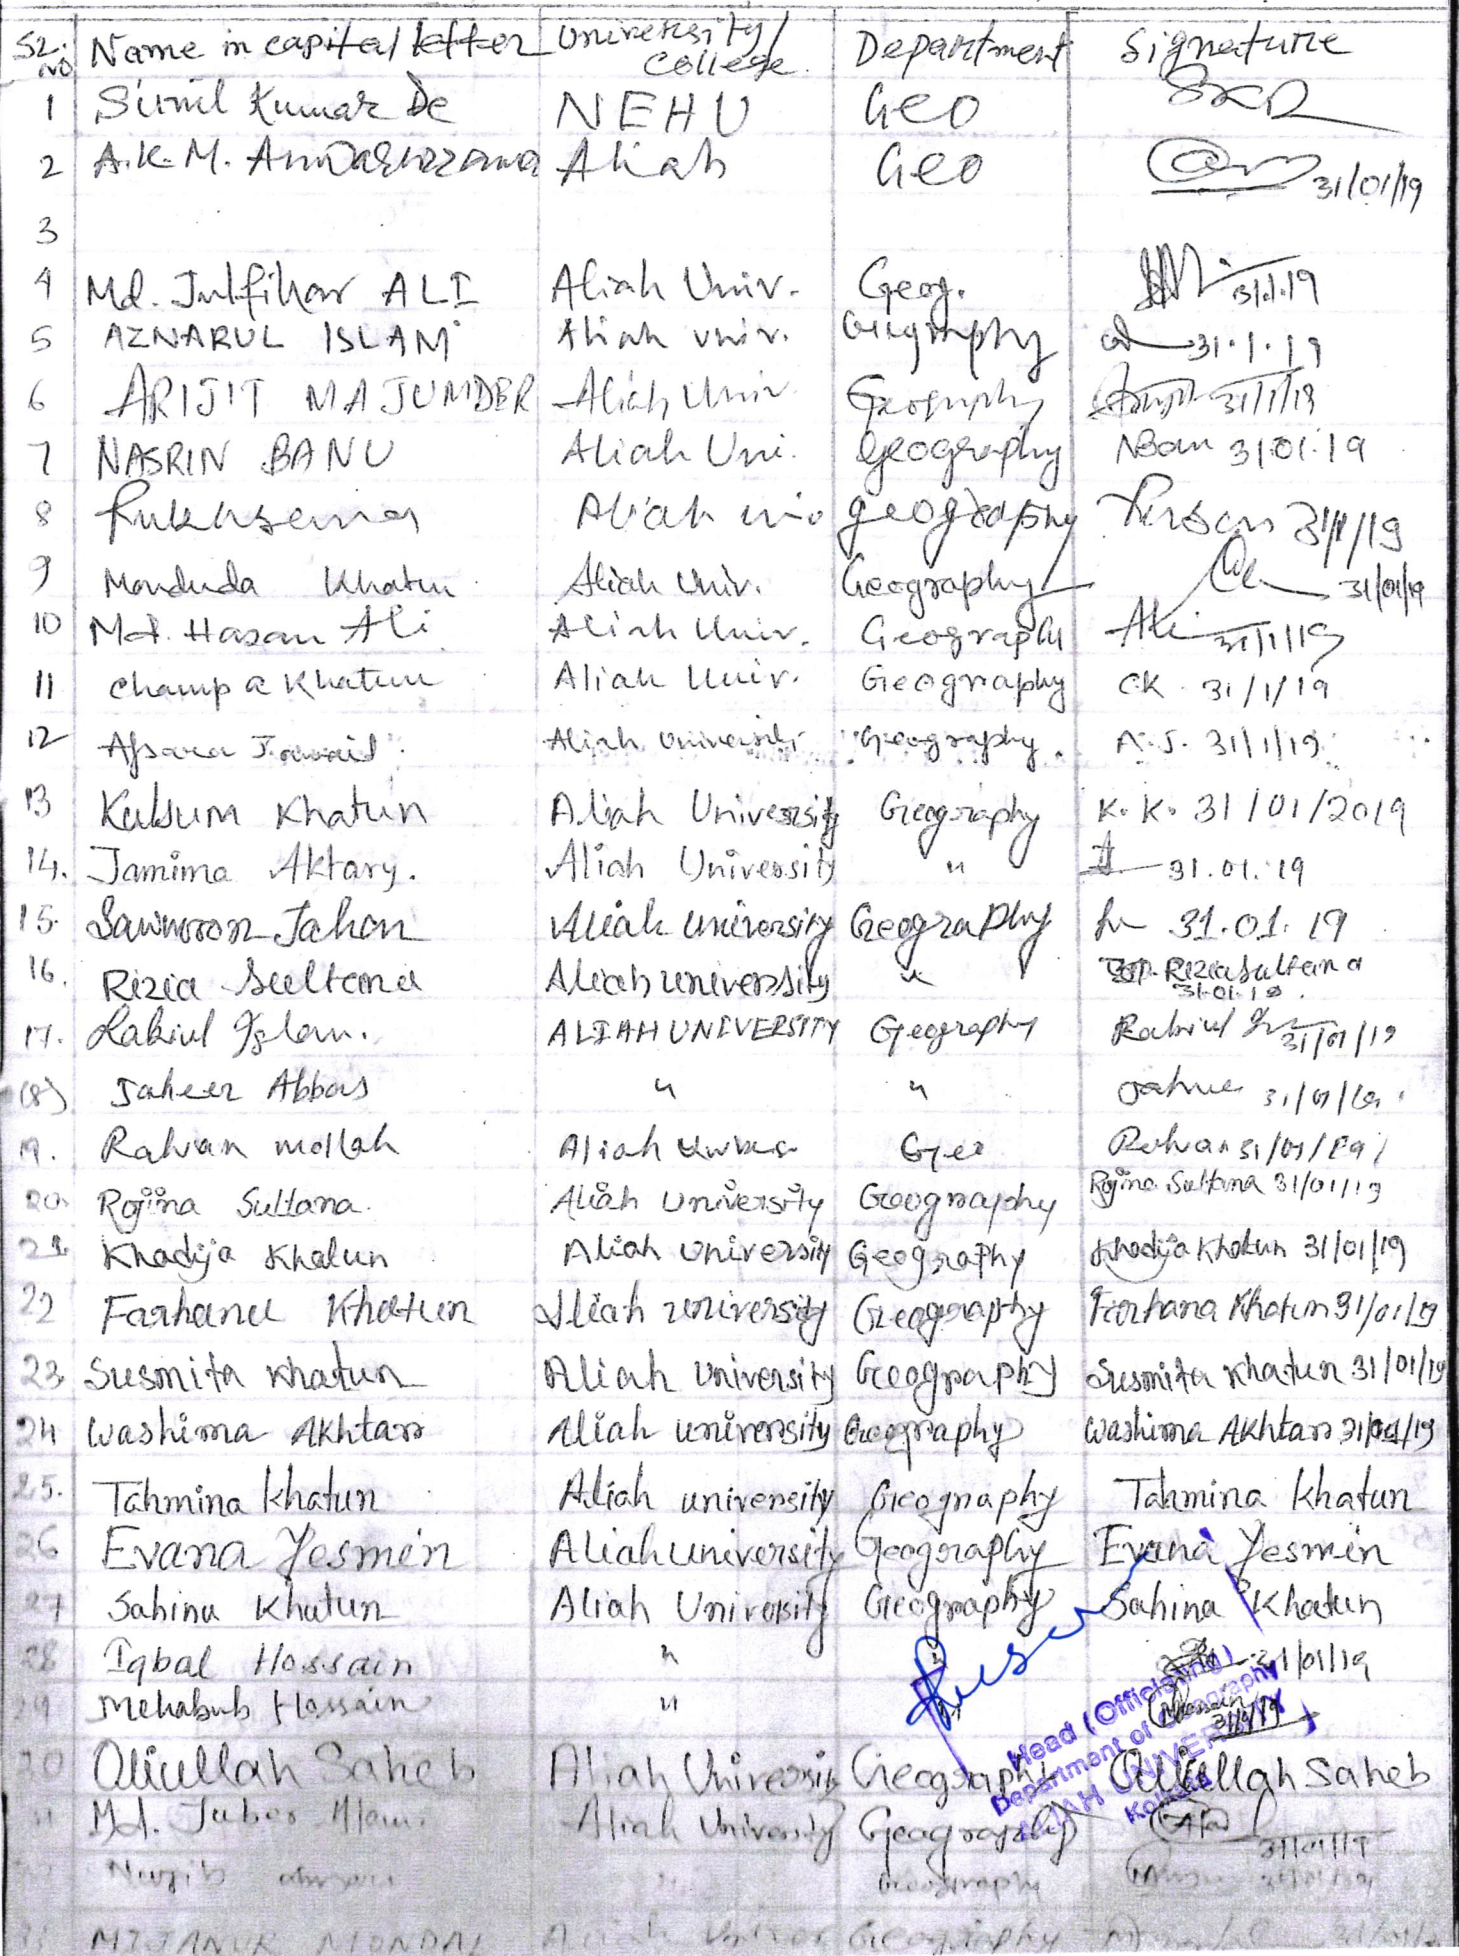 Sl. No Name in capital letter University/ College Department Signature
1 Sunil Kumar De NEHU Geo SKD
2 A.K.M. Anwaruzzaman Aliah Geo 31/01/19
3
4 Md. Julfikar ALI Aliah Univ. Geog. 31.1.19
5 AZNARUL ISLAM Aliah Univ. Geography 31.1.19
6 ARIJIT MAJUMDER Aliah Univ Geography 31/1/19
7 NASRIN BANU Aliah Uni. Geography NBanu 31.01.19
8 Rukhsana Aliah uni. geography 31/1/19
9 Khatun Aliah Univ. Geography 31/01/19
10 Md. Hasan Ali Aliah Univ. Geography Ali 31/1/19
11 Champa Khatun Aliah Univ. Geography C.K. 31/1/19
12 Afsara Aliah University Geography. A.J. 31/1/19
13 Kulsum Khatun Aliah University Geography K.K. 31/01/2019
14. Jamima Aktary. Aliah University " 31.01.19
15. Jahan Aliah University Geography 31.01.19
16. Rizia Sultana Aliah University " Rizia Sultana
31.01.19
17. Rabiul Islam. ALIAH UNIVERSITY Geography Rabiul 31/01/19
(18) Jaheer Abbas " " 31/01/19
19. Rahvan mollah Aliah Geo 31/01/19
20. Rojina Sultana. Aliah University Geography Rojina Sultana 31/01/19
21. Khadija Khatun Aliah University Geography Khadija Khatun 31/01/19
22 Farhana Khatun Aliah University Geography Farhana Khatun 31/01/19
23 Susmita Khatun Aliah University Geography Susmita Khatun 31/01/19
24 Washima Akhtar Aliah University Geography Washima Akhtar 31/01/19
25. Tahmina Khatun Aliah University Geography Tahmina Khatun
26 Evana Yesmin Aliah University Geography Evana Yesmin
27 Sahina Khatun Aliah University Geography Sahina Khatun
28 Iqbal Hossain " " 31/01/19
29 Mehabub Hossain " Hossain 31/1/19
Head (Officiating)
Department of Geography
ALIAH UNIVERSITY
Kolkata
30 Oliullah Saheb Aliah University Geography Oliullah Saheb
31 Md. Juber Alam Aliah University Geography 31/01/19
Geography
33 MIJANUR MONDAL Aliah Geography